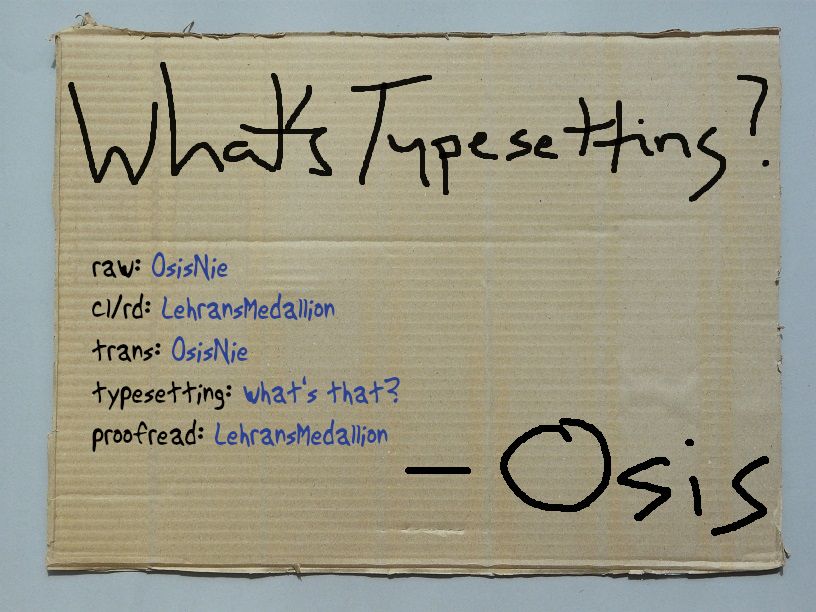 What's Typesetting?
raw: OsisNie
cl/rd: LehransMedallion
trans: OsisNie
typesetting: what's that?
proofread: LehransMedallion
— Osis